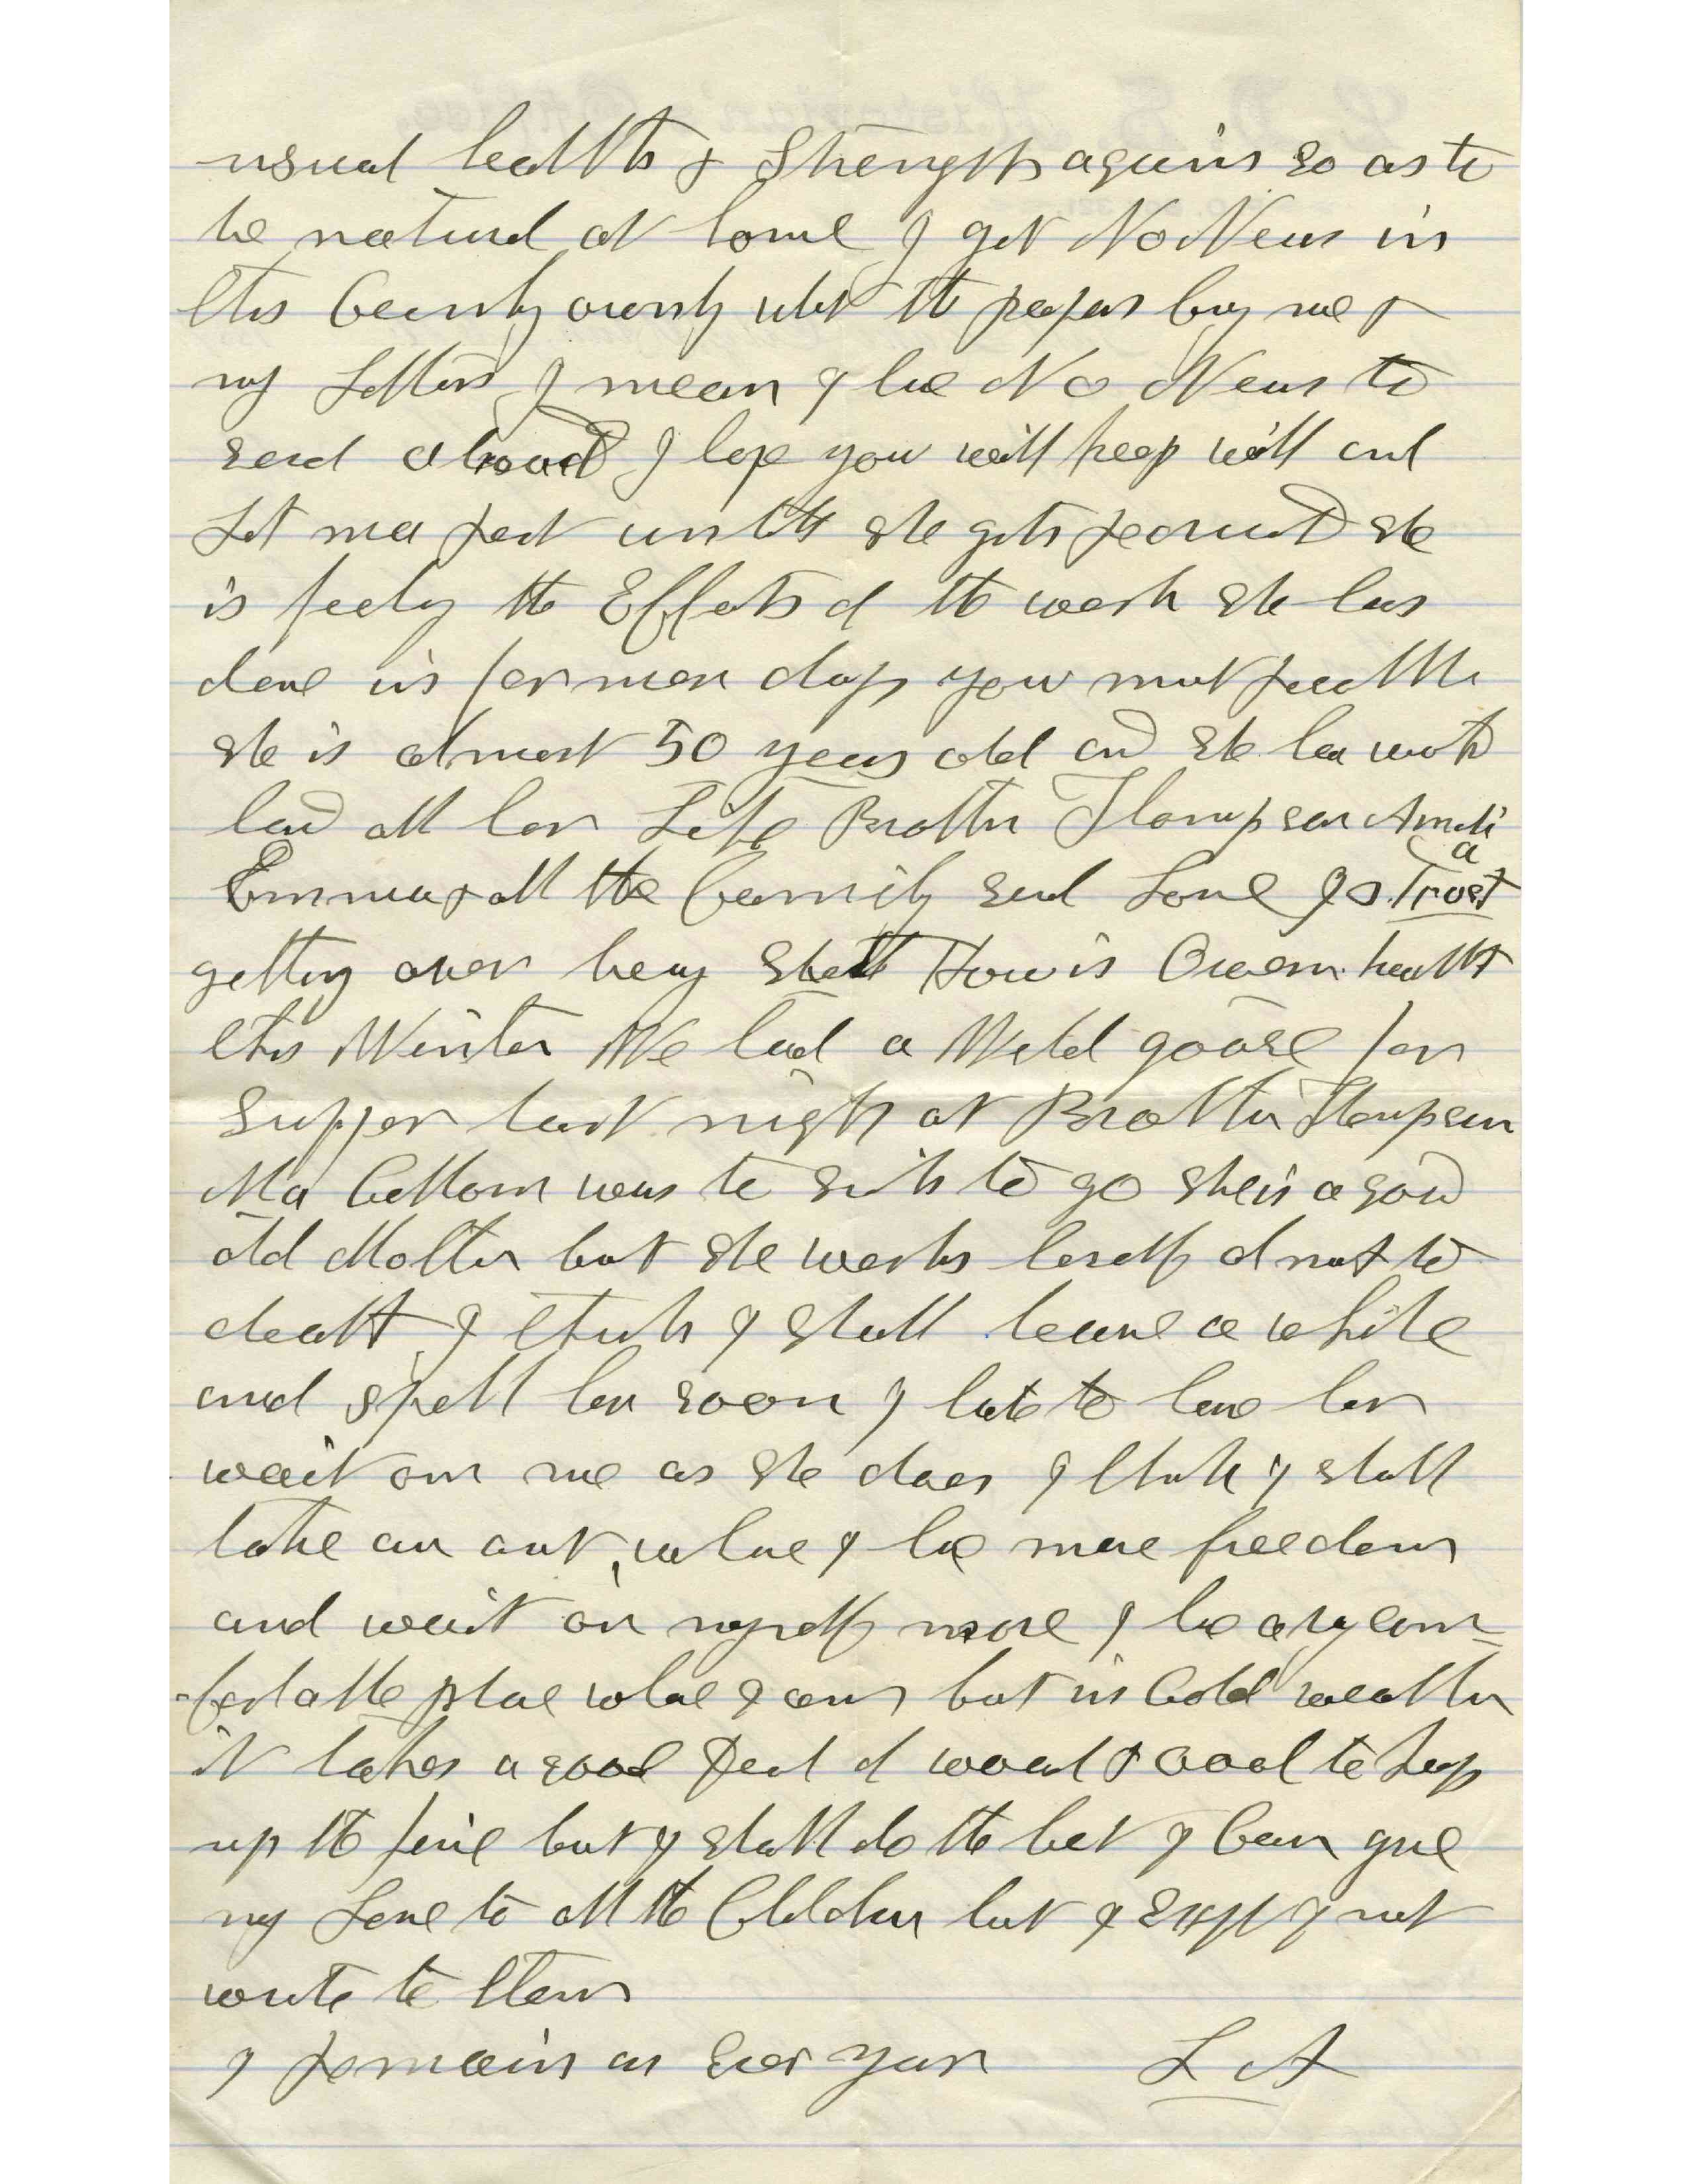 usual health & Strength again so as to
be natural at home I get No News in
this County only what the papers bring me &
my Letters I mean I have No News to
send abroad I hope you will keep well and
Let ma rest untill she gets recruted she
is feeling the Effects of the work she has
done in former days you must recollect
she is almost 50 years old and she has worked
hard all her Life Brother Thompson Amelia
Emma & all the family send Love Is Trost
getting over being shott How is Owen health
this Winter We had a Wild goose for
Supper last night at Brother Thompson
Ma Cottom was to sick to go she is a good
old Mother but she works herself almost to
death I think I shall leave a while
and spell her soon I hate to have her
wait on me as she does I think I shall
take an out, where I have more freedom
and wait on myself more I have a very com-
-fortable place where I am but in Cold weather
it takes a good deal of wood & coal to keep
up the fire but I shall do the best I can give
my Love to all the Children but I I not
write to them
I remain as Ever your L A